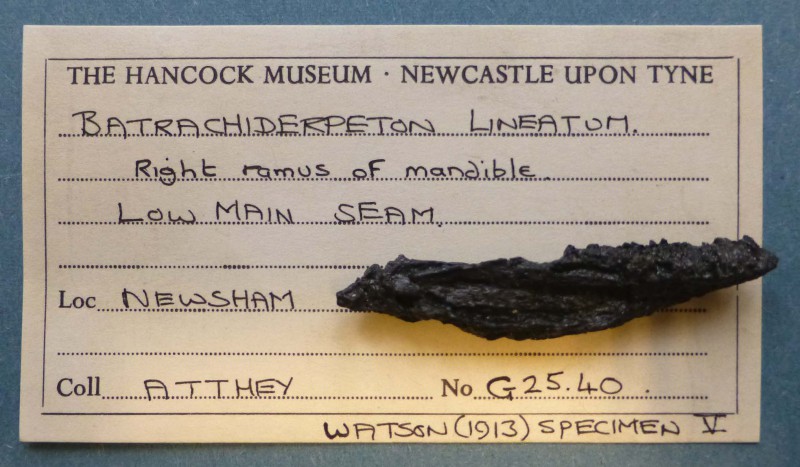 THE HANCOCK MUSEUM · NEWCASTLE UPON TYNE
BATRACHIDERPETON LINEATUM.
Right ramus of mandible.
LOW MAIN SEAM.
Loc NEWSHAM
Coll ATTHEY No G25.40.
WATSON (1913) SPECIMEN V